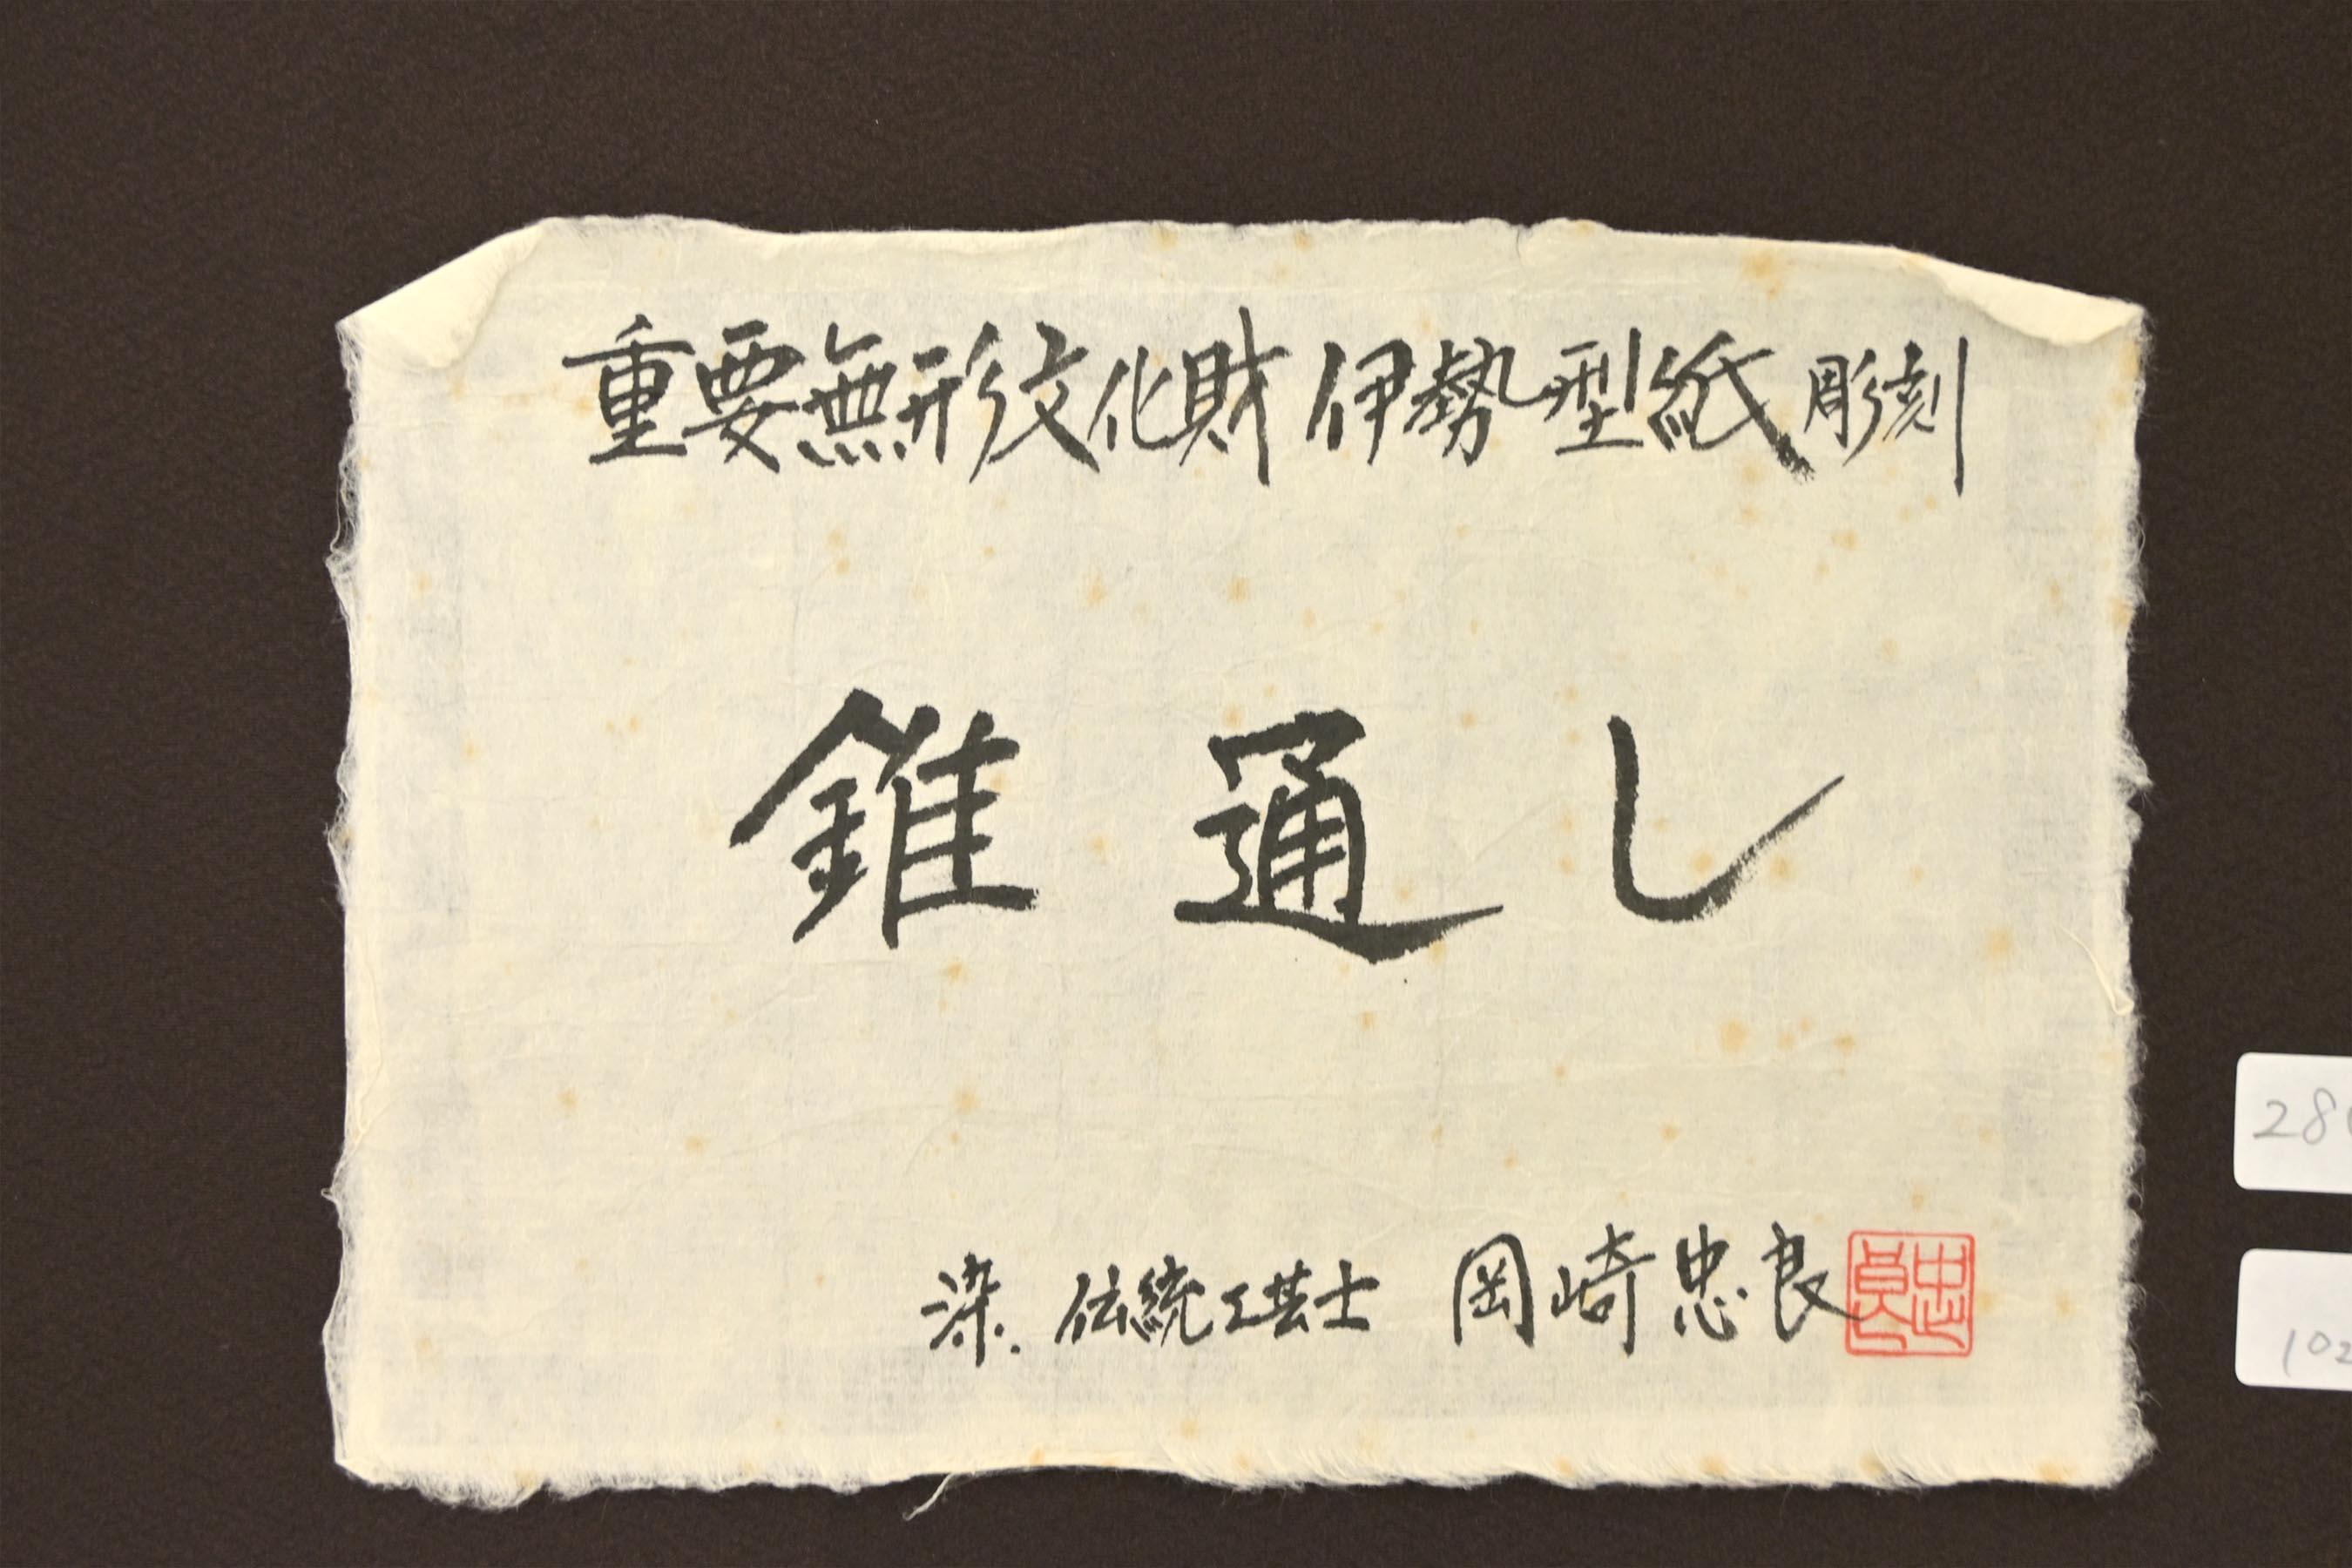 重要無形文化財 伊勢型紙 彫刻
錐通し
染.伝統工芸士 岡崎忠良
忠良
28
102